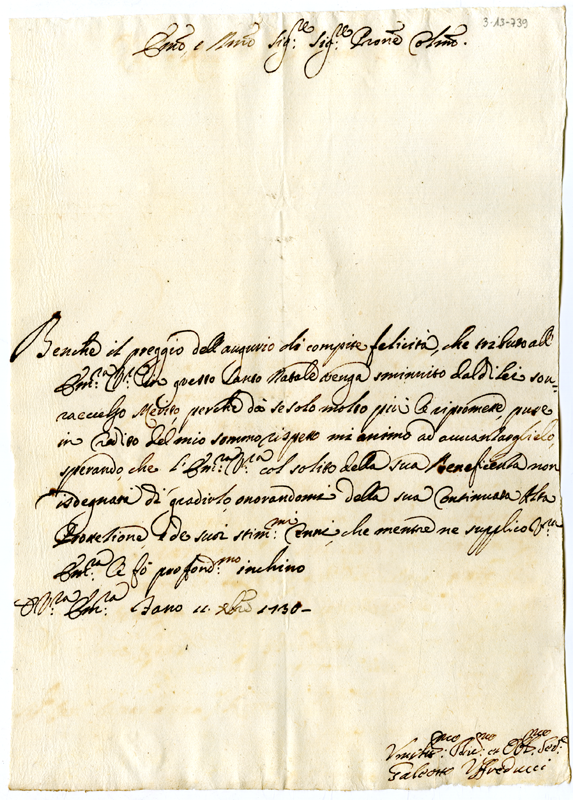 3-13-739
Em̃o, e Rm̃o Sig.re Sig.re Prone Colmo.
Benche il preggio dell'augurio di compite felicità, che tributo all'
Em.za V.ra in questo Santo Natale venga sminuito dal di lei sou-
raeccelso Merito perche da se solo molto più le ripromete, pure
in del mio sommo rispetto mi animo ad auuantaglielo,
sperando, che l'Em.za V.ra col solito della sua Beneficenza non
isdegnarà di gradirlo onorandomi della sua continuata Alta
Protetione e de suoi stim.mi che mentre ne supplico V.ra
Em.za le fò profond.mo inchino
D V.ra Em.za Fano 11 Xbre 1730-
Umiliss.mo Dev.mo et Obl. Ser.
Galeotto Uffreducci